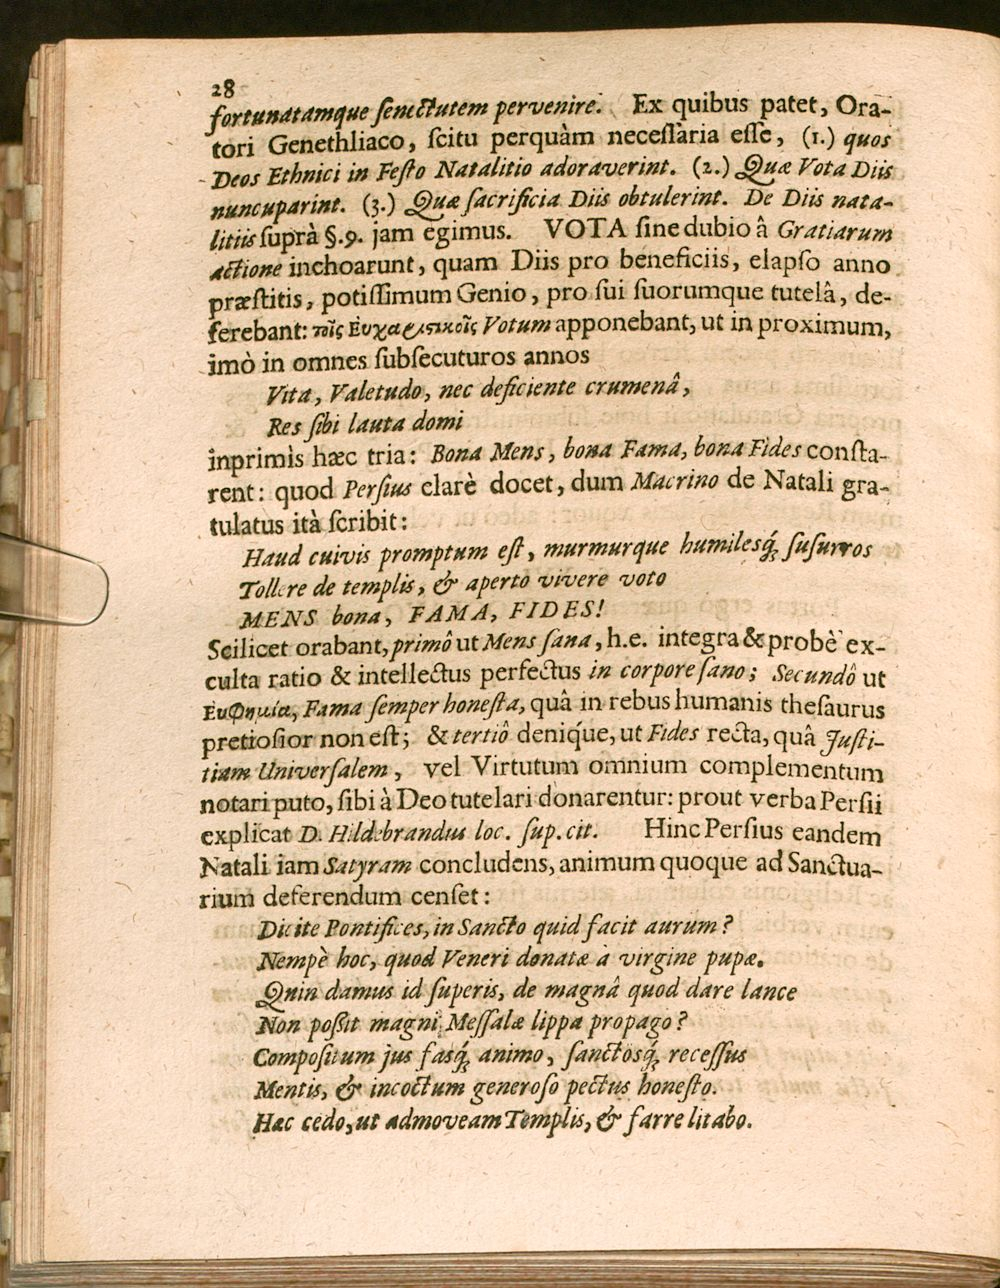 28
fortunatamque ſenectutem pervenire. Ex quibus patet, Ora-
tori Genethliaco, ſcitu perquàm neceſſaria eſſe, (1.) quos
Deos Ethnici in Feſto Natalitio adoraverint. (2.) Quæ Vota Diis
nuncuparint. (3.) Quæ ſacrificia Diis obtulerint. De Diis nata-
litiis ſuprà §.9. jam egimus. VOTA ſine dubio â Gratiarum
actione inchoarunt, quam Diis pro beneficiis, elapſo anno
præſtitis, potiſſimum Genio, pro ſui ſuorumque tutelâ, de-
ferebant: τοῖς Ευχαριστικοῖς Votum apponebant, ut in proximum,
imò in omnes ſubſecuturos annos
Vita, Valetudo, nec deficiente crumenâ,
Res ſibi lauta domi
inprimis hæc tria: Bona Mens, bona Fama, bona Fides conſta-
rent: quod Perſius clarè docet, dum Macrino de Natali gra-
tulatus ità ſcribit:
Haud cuivis promptum eſt, murmurque humilesq́; ſuſurros
Tollere de templis, & aperto vivere voto
MENS bona, FAMA, FIDES!
Scilicet orabant, primô ut Mens ſana, h.e. integra & probè ex-
culta ratio & intellectus perfectus in corpore ſano; Secundô ut
Ευφημία, Fama ſemper honeſta, quâ in rebus humanis theſaurus
pretioſior non eſt; & tertiô deniq́ue, ut Fides recta, quâ Juſti-
tiam Univerſalem, vel Virtutum omnium complementum
notari puto, ſibi à Deo tutelari donarentur: prout verba Perſii
explicat D. Hildebrandus loc. ſup. cit. Hinc Perſius eandem
Natali iam Satyram concludens, animum quoque ad Sanctua-
rium deferendum cenſet:
Dicite Pontifices, in Sancto quid facit aurum?
Nempè hoc, quod Veneri donatæ à virgine pupæ.
Quin damus id ſuperis, de magnâ quod dare lance
Non poßit magni Meſſalæ lippa propago?
Compoſitum jus fasq́; animo, ſanctosq́; receſſus
Mentis, & incoctum generoſo pectus honeſto.
Hac cedo, ut admoveam Templis, & farre litabo.